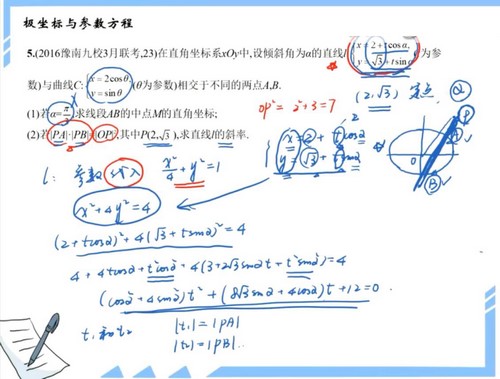 极坐标与参数方程
5.(2016豫南九校3月联考,23)在直角坐标系xOy中,设倾斜角为α的直线l:{x=2+tcosα, y=√3+tsinα (t为参
数)与曲线C:{x=2cosθ, y=sinθ (θ为参数)相交于不同的两点A,B.
(1)若α=π/3,求线段AB的中点M的直角坐标;
(2)若|PA|·|PB|=|OP|²,其中P(2,√3),求直线l的斜率.
OP²=2²+3=7
(2,√3) 定点
{x=2+tcosα
y=√3+tsinα
l: 参数 代入 x²/4+y²=1
x²+4y²=4
(2+tcosα)²+4(√3+tsinα)²=4
4+4tcosα+t²cos²α+4(3+2√3sinαt+t²sin²α)=4
(cos²α+4sin²α)t²+(8√3sinα+4cosα)t+12=0
t₁和t₂
|t₁|=|PA|
|t₂|=|PB|..
P
A
B
O